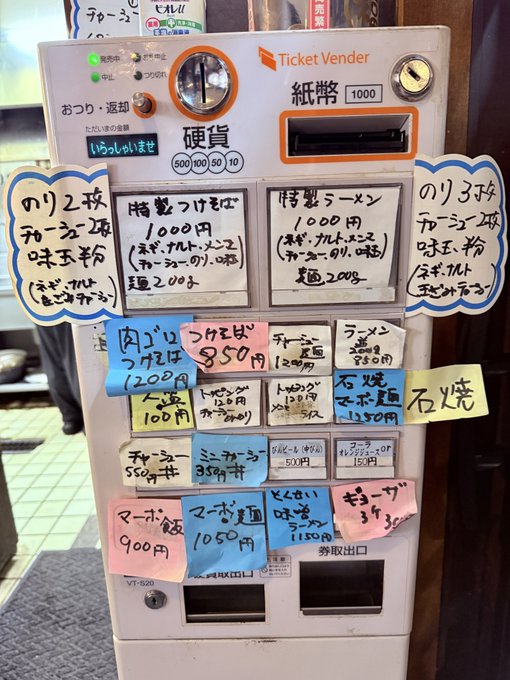 ビオレu
チャーシュー
発売中
おつり中止
中止
つり切れ
おつり・返却
ただいまの金額
いらっしゃいませ
硬貨
500 100 50 10
Ticket Vender
紙幣 1000
のり2枚
チャーシュー2枚
味玉、粉
(ネギ、ナルト
特製つけそば
1000円
(ネギ、ナルト、メンマ
(チャーシュー、のり、味玉
麺200g
特製ラーメン
1000円
(ネギ、ナルト、メンマ
(チャーシュー、のり、味玉)
麺200g
のり3枚
チャーシュー2枚
味玉、粉
(ネギ、ナルト
肉ゴロ
つけそば
1200円
つけそば
850円
チャーシュー
麺
1200円
ラーメン
並
200g
850円
100円
トッピング
120円
チャーシュー
トッピング
120円
メンマ
ライス
石焼
マーボ麺
1250円
石焼
チャーシュー
550円 丼
ミニチャーシュー
350円 丼
びんビール(中びん)
500円
コーラ
オレンジジュースor
150円
マーボ飯
900円
マーボ麺
1050円
とくせい
味噌
ラーメン
1150円
ギョーザ
3ケ
VT-S20
硬貨取出口
券取出口